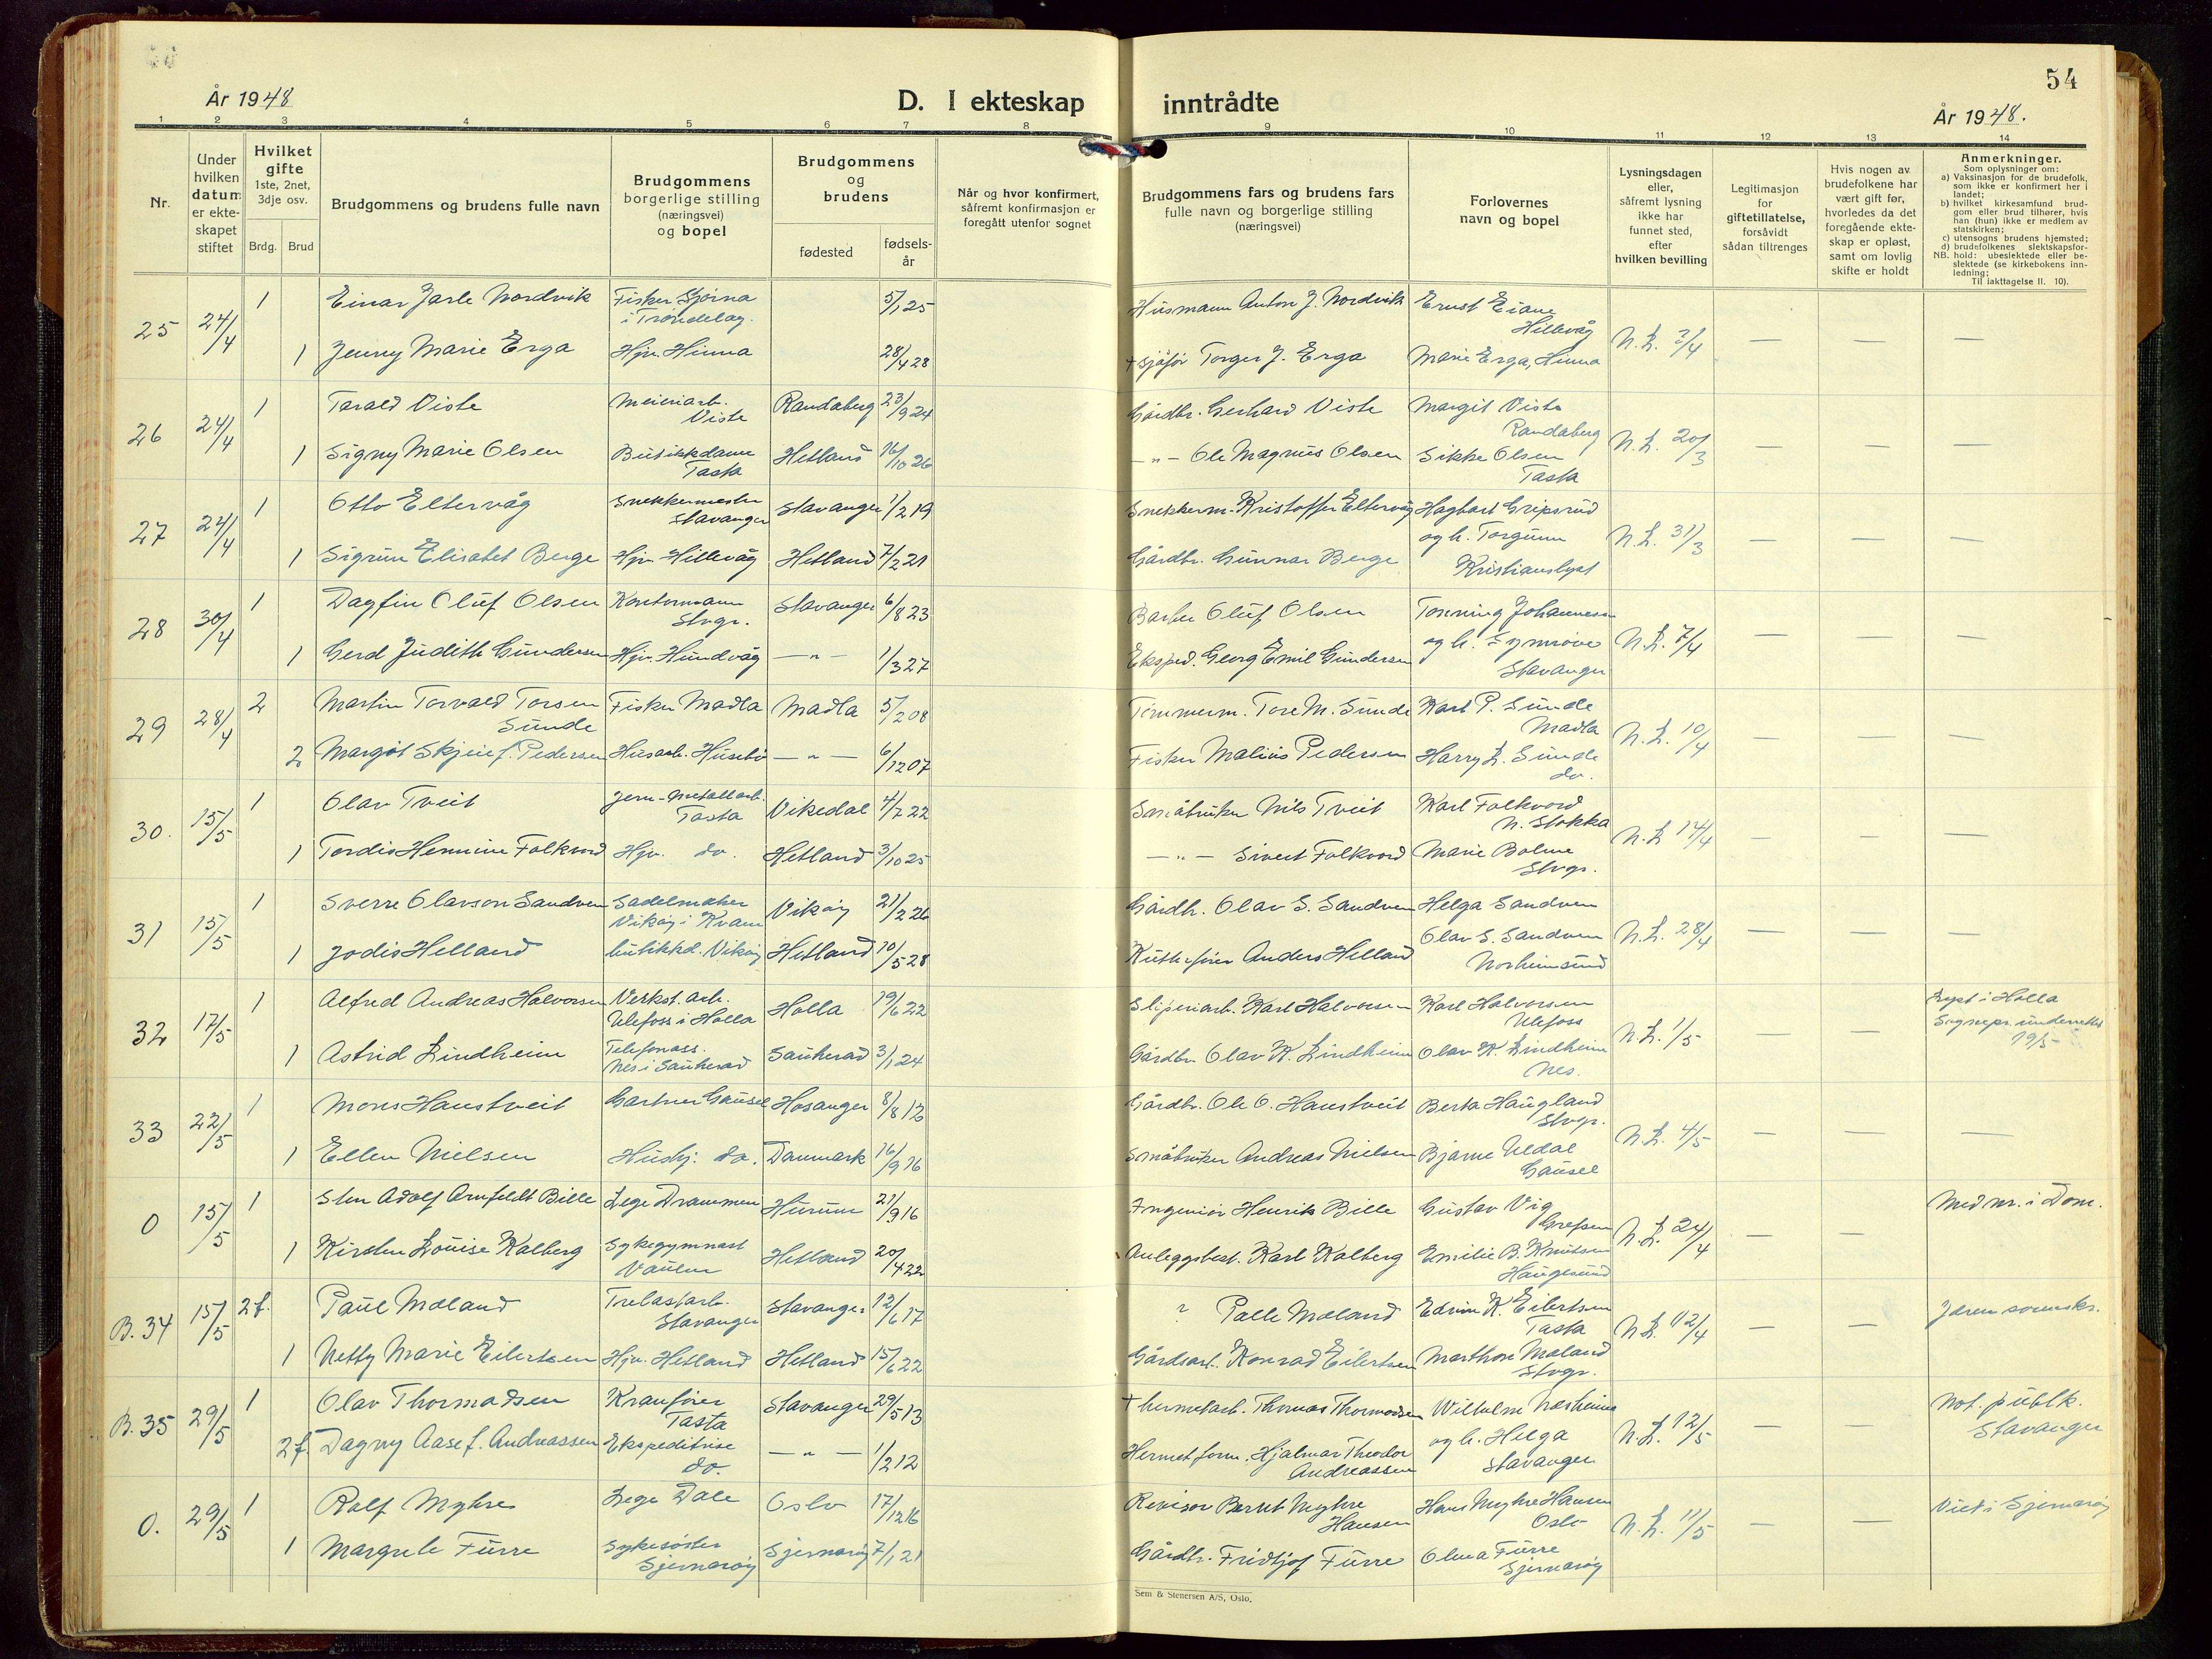 54
År 1948
D. I ekteskap inntrådte
År 1948.
1 2 3 4 5 6 7 8 9 10 11 12 13 14
Nr.
Under hvilken datum er ekteskapet stiftet
Hvilket gifte
1ste, 2net, 3dje osv.
Brdg. Brud
Brudgommens og brudens fulle navn
Brudgommens borgerlige stilling (næringsvei) og bopel
Brudgommens og brudens
fødested
fødsels-år
Når og hvor konfirmert, såfremt konfirmasjon er foregått utenfor sognet
Brudgommens fars og brudens fars fulle navn og borgerlige stilling (næringsvei)
Forlovernes navn og bopel
Lysningsdagen eller, såfremt lysning ikke har funnet sted, efter hvilken bevilling
Legitimasjon for giftetillatelse, forsåvidt sådan tiltrenges
Hvis nogen av brudefolkene har vært gift før, hvorledes da det foregående ekteskap er opløst, samt om lovlig skifte er holdt
Anmerkninger.
Som oplysning om:
a) Vaksinasjon for de brudefolk, som ikke er konfirmert her i landet;
b) hvilket kirkesamfund brudgom eller brud tilhører, hvis han (hun) ikke er medlem av statskirken;
c) utensogns brudens hjemsted;
d) brudefolkenes slektskapsforhold: ubeslektede eller beslektede (se kirkebokens innledning;
NB.
Til iakttagelse II. 10).
25 24/4 1 Einar Jarle Nordvik Fisker Stjørna i Trøndelag. 5/1 25 Husmann Anton J. Nordvik Ernst Eiane Hillevåg N.L. 2/4 — — —
1 Jenny Marie Erga Hjv. Hinna 28/4 28 + sjåfør Torger J. Erga Marie Erga, Hinna
26 24/4 1 Tarald Viste Meieriarb. Viste Randaberg 23/9 24 Gårdbr. Gerhard Viste Margit Viste Randaberg N.L. 20/3 — — —
1 Signy Marie Olsen Butikkdame Tasta Hetland 16/10 26 — " — Ole Magnus Olsen Sikke Olsen Tasta
27 24/4 1 Otto Eltervåg Snekkermester Stavanger Stavanger 1/2 19 Snekkerm. Kristoffer Eltervåg Hagbart Gripsrud og h. Torgunn Kristianslyst N.L. 31/3 — — —
1 Sigrun Elisabet Berge Hjv. Hillevåg Hetland 7/2 21 Gårdbr. Gunnar Berge
28 30/4 1 Dagfin Oluf Olsen Kontormann Stvgr. Stavanger 6/8 23 Barber Oluf Olsen Tonning Johannessen og h. Synnøve Stavanger N.L. 7/4 — — —
1 Gerd Judith Gundersen Hjv. Hundvåg — " — 1/3 27 Eksped. Georg Emil Gundersen
29 28/4 2 Martin Torvald Torsen Sunde Fisker Madla Madla 5/2 08 Tømmerm. Tore M. Sunde Karl P. Sunde Madla N.L. 10/4 — — —
2 Margot Skjeie f. Pedersen Husarb. Husebø — " — 6/12 07 Fisker Malius Pedersen Harry L. Sunde do.
30. 15/5 1 Olav Tveit Jern-metallarb. Tasta Vikedal 4/7 22 Småbruker Nils Tveit Karl Folkvord N. Stokka N.L. 14/4 — — —
1 Tordis Hennine Folkvord Hjv. do. Hetland 3/10 25 — " — Sivert Folkvord Marie Bolme Stvgr.
31 15/5 1 Sverre Olavson Sandven Sadelmaker Vikøy i Kvam Vikøy 21/2 26 Gårdbr. Olav S. Sandven Helga Sandven N.L. 28/4 — — —
1 Jodis Helland butikkd. Vikøy Hetland 10/5 28 Rutefører Anders Helland Olav S. Sandven Norheimsund
32 17/5 1 Alfred Andreas Halvorsen Verkst. arb. Ulefoss i Holla Holla 19/6 22 Sliperiarb. Karl Halvorsen Karl Halvorsen Ulefoss N.L. 1/5 — — Lyst i Holla Sognepr. underrettet 19/5
1 Astrid Lindheim Telefonass. Nes i Sauherad Sauherad 3/1 24 Gårdbr. Olav K. Lindheim Olav K. Lindheim Nes.
33 22/5 1 Mons Haustveit Gartner Gausel Hosanger 8/8 13 Gårdbr. Ole O. Haustveit Berta Haugland Stvgr. N.L. 4/5 — — —
1 Ellen Nielsen Husbj. do. Danmark 16/9 16 Småbruker Andreas Nielsen Bjarne Uldal Gausel
0 15/5 1 Sten Adolf Arnfeldt Bille Lege Drammen Hurum 21/9 16 Ingeniør Henrik Bille Gustav Vig Grefsen N.L. 24/4 — — Med nr. i Dom.
1 Kirsten Louise Kalberg Sykegymnast Vaulen Hetland 20/4 22 Anleggsbest. Karl Kalberg Emilie B. Knutsen Haugesund
B. 34 15/5 2 f. Paul Moland Trelastarb. Stavanger Stavanger 12/6 17 ? Palle Moland Edvin K. Eilertsen Tasta N.L. 12/4 — — Jæren sorenskr.
1 Netty Marie Eilertsen Hjv. Hetland Hetland 15/6 22 Gårdsarb. Konrad Eilertsen Marthon Moland Stvgr.
B. 35 29/5 1 Olav Thormodsen Kranfører Tasta Stavanger 29/5 13 + hermetarb. Thomas Thormodsen Wilhelm Næsheim og h. Helga Stavanger N.L. 12/5 — — Not. publk. Stavanger
2 f. Dagny Aase f. Andreassen Ekspeditrise do. — " — 1/2 12 Hermet form. Hjalmar Theodor Andreassen
0. 29/5 1 Rolf Myhre Lege Dale Oslo 17/12 16 Revisor Bernt Myhre Hansen Hans Myhre Hansen Oslo N.L. 11/5 — — Viet i Sjernarøy
1 Margrete Furre Sykesøster Sjernarøy Sjernarøy 7/1 21 Gårdbr. Fridtjof Furre Olma Furre Sjernarøy
Sem & Stenersen A/S, Oslo.